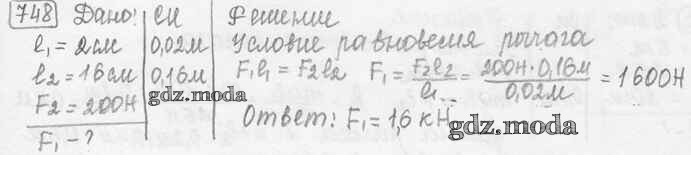 748 Дано: СИ Решение
l₁ = 2см 0,02м Условие равновесия рычага
l₂ = 16см 0,16м F₁l₁ = F₂l₂ F₁ = F₂l₂/l₁ = 200Н·0,16м/0,02м = 1600Н
F₂ = 200Н gdz.moda
F₁ - ? Ответ: F₁ = 1,6 кН.
gdz.moda